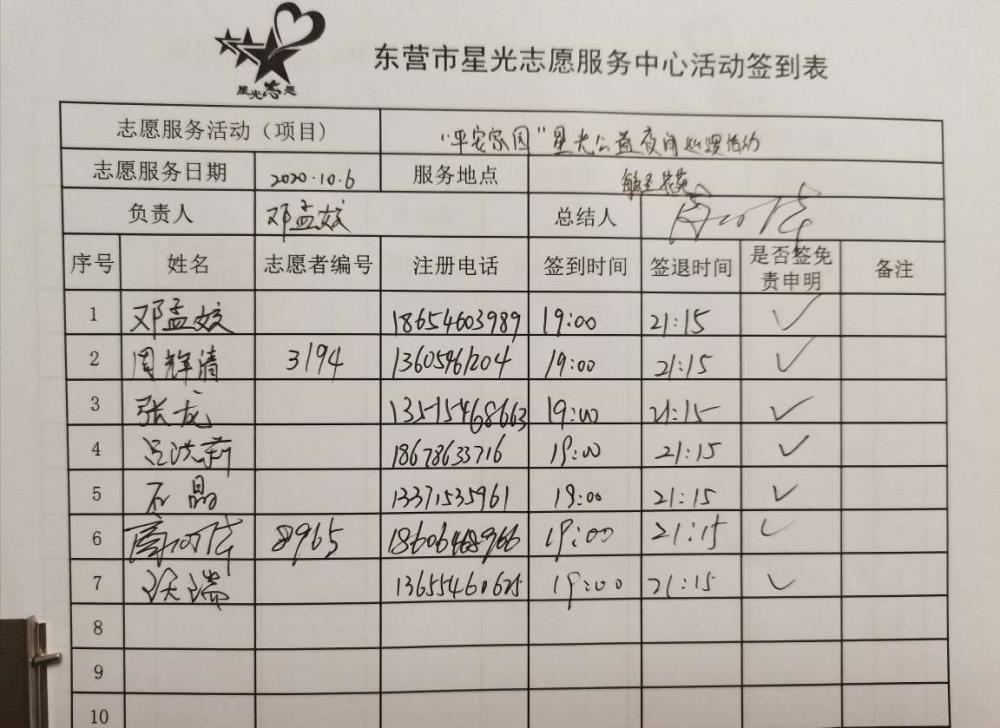 星光志愿
东营市星光志愿服务中心活动签到表
志愿服务活动（项目） “平安家园”星光公益夜间巡逻活动
志愿服务日期 2020.10.6 服务地点
负责人 邓孟姣 总结人
序号 姓名 志愿者编号 注册电话 签到时间 签退时间 是否签免责申明 备注
1 邓孟姣 18654603989 19:00 21:15 ✓
2 周辉清 3194 13605461204 19:00 21:15 ✓
3 张龙 13515468663 19:00 21:15 ✓
4 吕洪莉 18678633716 19:00 21:15 ✓
5 石晶 13371535961 19:00 21:15 ✓
6 8965 19:00 21:15 ✓
7 13655460625 19:00 21:15 ✓
8
9
10